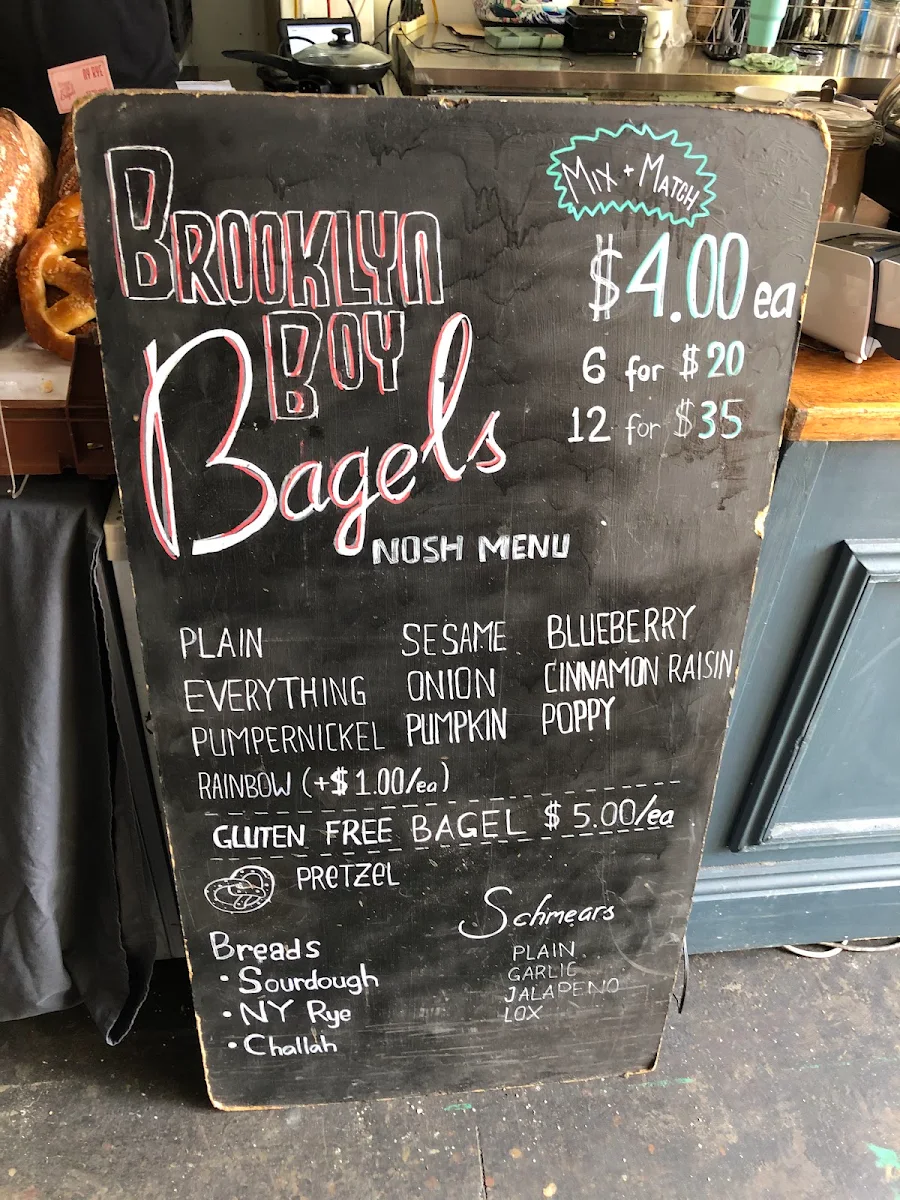 BROOKLYN
BOY
Bagels
NOSH MENU
MIX + MATCH
$4.00 ea
6 for $20
12 for $35
PLAIN SESAME BLUEBERRY
EVERYTHING ONION CINNAMON RAISIN
PUMPERNICKEL PUMPKIN POPPY
RAINBOW (+$1.00/ea)
GLUTEN FREE BAGEL $5.00/ea
PRETZEL
Breads
• Sourdough
• NY Rye
• Challah
Schmears
PLAIN
GARLIC
JALAPENO
LOX